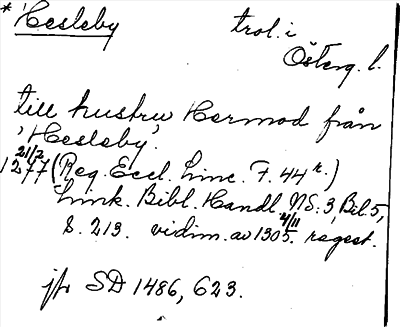 * 'Hesleby trol. i
Österg. l.
till hustru, Hermod från
'Hesleby'.
21/2
1277 (Reg. Eccl. Linc. F. 44 r.)
Link. Bibl. Handl. NS: 3, Bil. 5,
S. 213. vidim. av 1305 4/11. regest.
jfr SD 1486, 623.